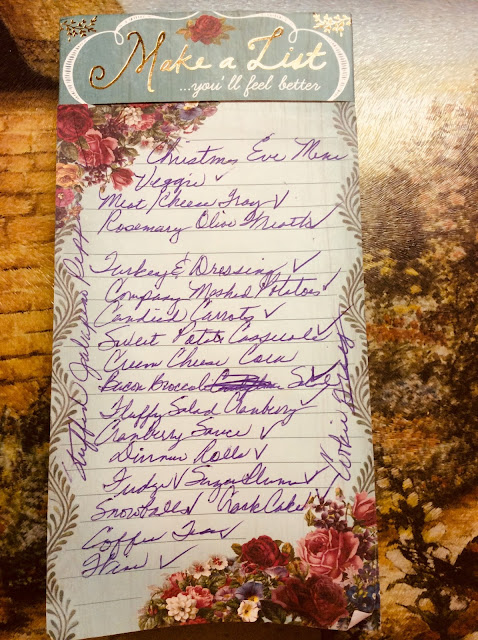 Make a List
...you'll feel better
Christmas Eve Menu
Veggie ✓
Meat/Cheese Tray ✓
Rosemary Olive
Turkey & Dressing ✓
Company Mashed Potatoes ✓
Candied Carrots ✓
Sweet Potato Casserole ✓
Cream Cheese Corn
Bacon Broccoli
Fluffy Salad Cranberry ✓
Cranberry Sauce ✓
Dinner Rolls ✓
Fudge ✓ Sugar Plums ✓
Snowballs ✓ Cake ✓
Coffee Tea ✓
Wine ✓
Jalapeno
Cookie